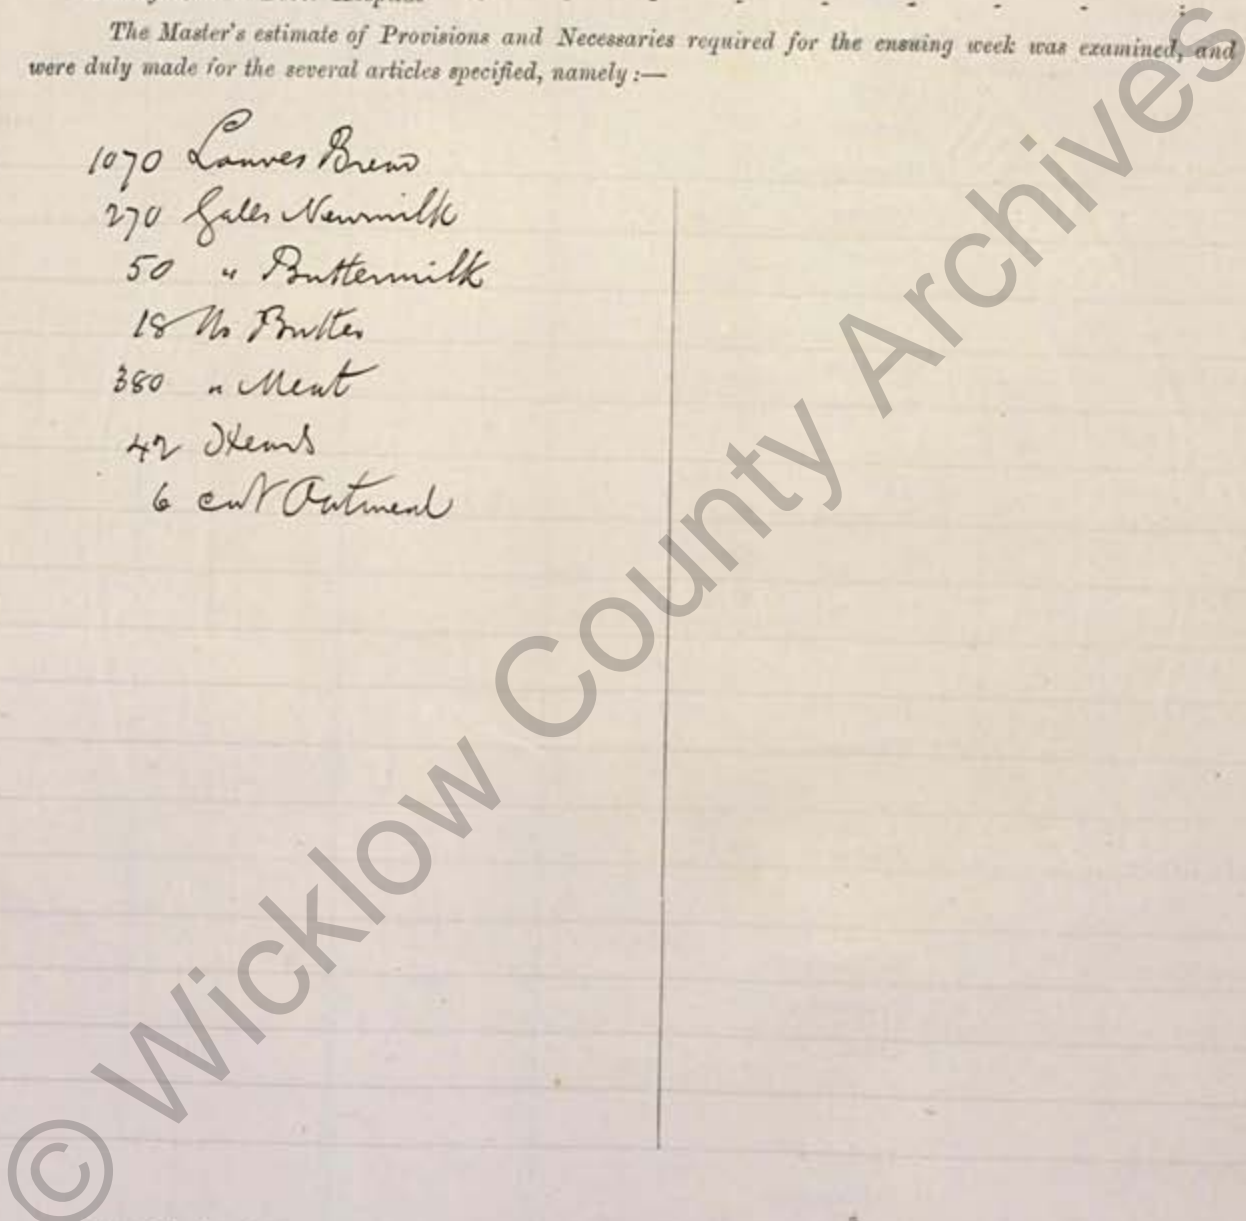 The Master's estimate of Provisions and Necessaries required for the ensuing week was examined, and
were duly made for the several articles specified, namely :—
1070 Loaves Bread
270 Galls Newmilk
50 " Buttermilk
18 lbs Butter
380 " Meat
42 Heads
6 cwt Oatmeal
© Wicklow County Archives